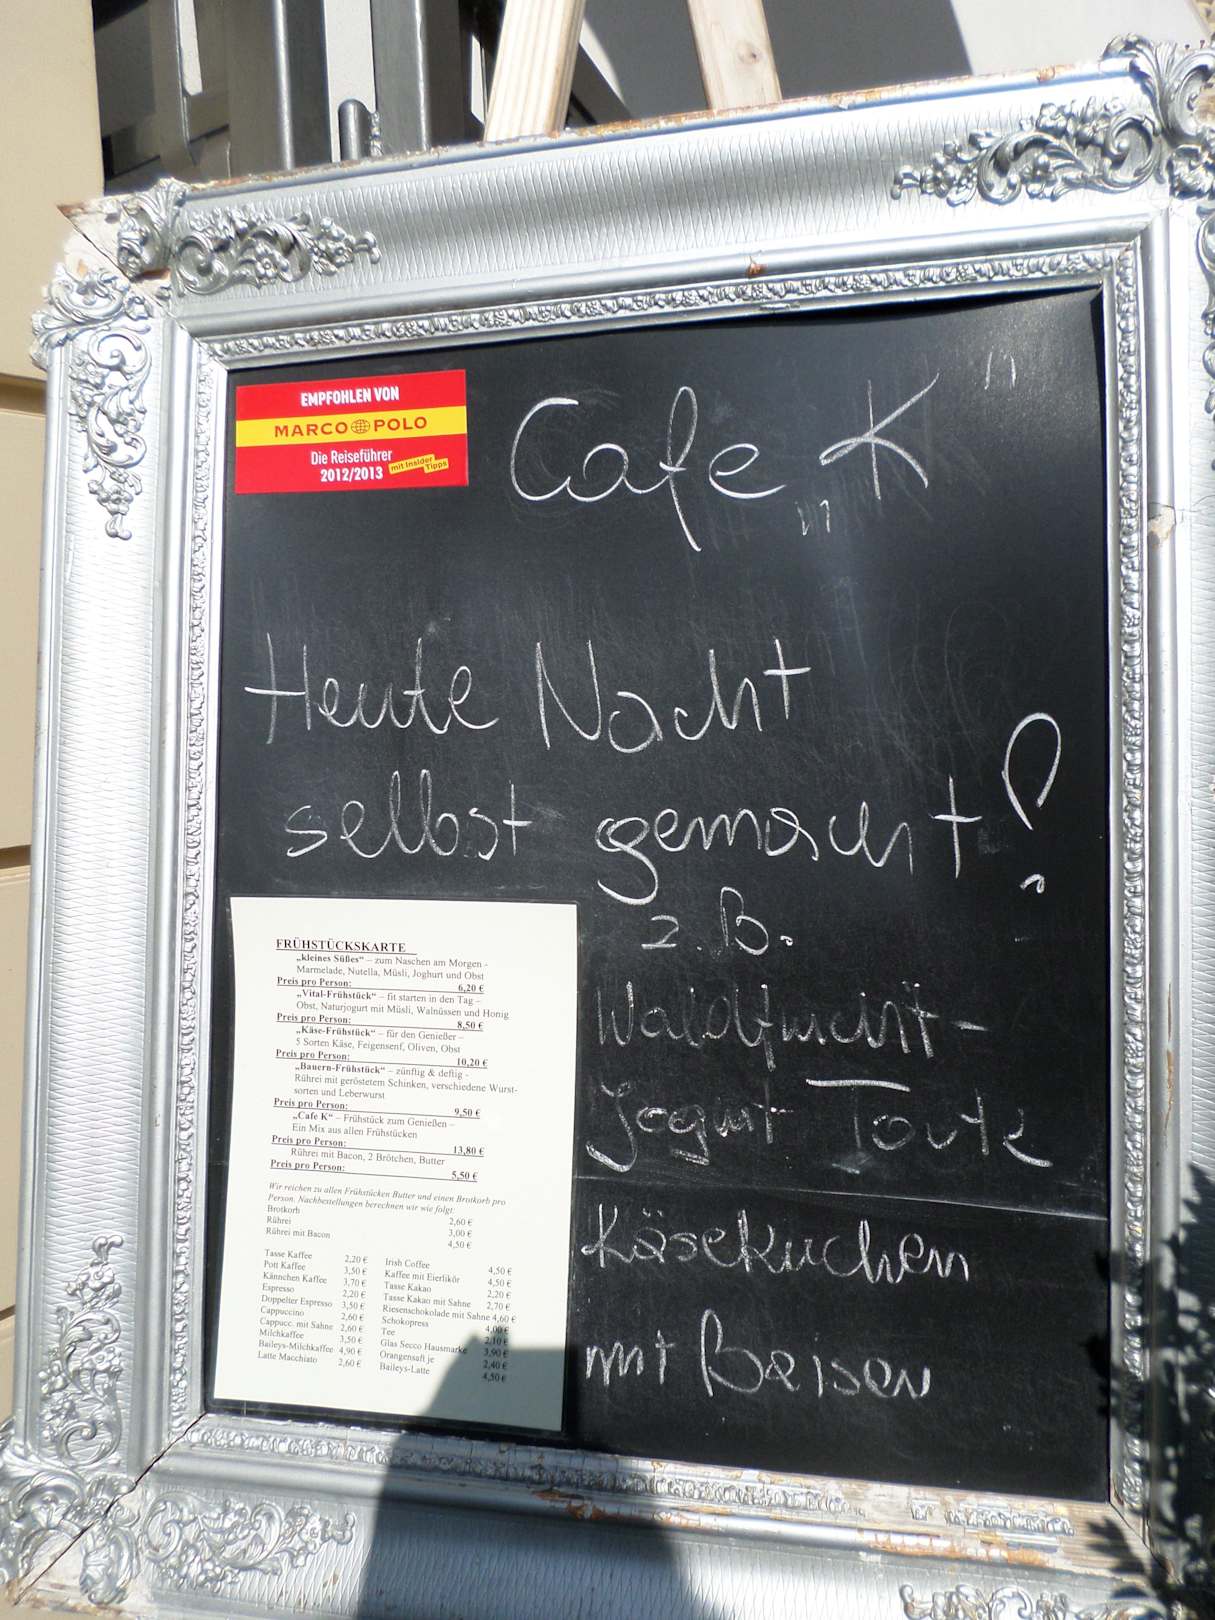 EMPFOHLEN VON
MARCO POLO
Die Reiseführer
2012/2013
mit Insider
Tipps
Cafe „K"
Heute Nacht
selbst gemacht!
z.B.
Waldfrucht-
Jogurt-Torte
Käsekuchen
mit Baisen
FRÜHSTÜCKSKARTE
„kleines Süßes“ – zum Naschen am Morgen -
Marmelade, Nutella, Müsli, Joghurt und Obst
Preis pro Person: 6,20 €
„Vital-Frühstück“ – fit starten in den Tag –
Obst, Naturjogurt mit Müsli, Walnüssen und Honig
Preis pro Person: 8,50 €
„Käse-Frühstück“ – für den Genießer –
5 Sorten Käse, Feigensenf, Oliven, Obst
Preis pro Person: 10,20 €
„Bauern-Frühstück“ – zünftig & deftig -
Rührei mit geröstetem Schinken, verschiedene Wurst-
sorten und Leberwurst
Preis pro Person: 9,50 €
„Cafe K“ – Frühstück zum Genießen –
Ein Mix aus allen Frühstücken
Preis pro Person: 13,80 €
Rührei mit Bacon, 2 Brötchen, Butter
Preis pro Person: 5,50 €
Wir reichen zu allen Frühstücken Butter und einen Brotkorb pro
Person. Nachbestellungen berechnen wir wie folgt:
Brotkorb 2,60 €
Rührei 3,00 €
Rührei mit Bacon 4,50 €
Tasse Kaffee 2,20 €
Pott Kaffee 3,50 €
Kännchen Kaffee 3,70 €
Espresso 2,20 €
Doppelter Espresso 3,50 €
Cappuccino 2,60 €
Cappucc. mit Sahne 2,60 €
Milchkaffee 3,50 €
Baileys-Milchkaffee 4,90 €
Latte Macchiato 2,60 €
Irish Coffee 4,50 €
Kaffee mit Eierlikör 4,50 €
Tasse Kakao 2,20 €
Tasse Kakao mit Sahne 2,70 €
Riesenschokolade mit Sahne 4,60 €
Schokopress 4,00 €
Tee 2,10 €
Glas Secco Hausmarke 3,90 €
Orangensaft je 2,40 €
Baileys-Latte 4,50 €